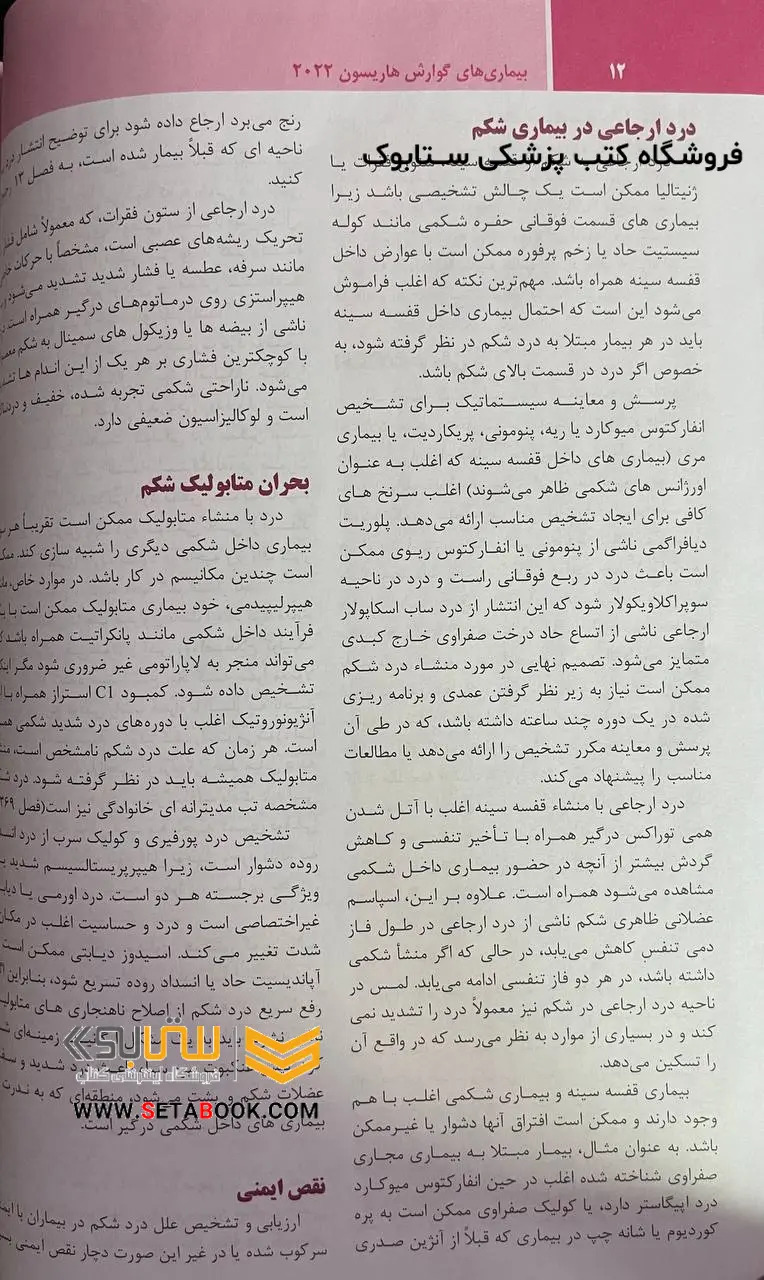 ۱۲
بیماری‌های گوارش هاریسون ۲۰۲۲
درد ارجاعی در بیماری شکم
فروشگاه کتب پزشکی ستابوک
ژنیتالیا ممکن است یک چالش تشخیصی باشد زیرا
بیماری های قسمت فوقانی حفره شکمی مانند کوله
سیستیت حاد یا زخم پرفوره ممکن است با عوارض داخل
قفسه سینه همراه باشد. مهم‌ترین نکته که اغلب فراموش
می‌شود این است که احتمال بیماری داخل قفسه سینه
باید در هر بیمار مبتلا به درد شکم در نظر گرفته شود، به
خصوص اگر درد در قسمت بالای شکم باشد.
پرسش و معاینه سیستماتیک برای تشخیص
انفارکتوس میوکارد یا ریه، پنومونی، پریکاردیت، یا بیماری
مری (بیماری های داخل قفسه سینه که اغلب به عنوان
اورژانس های شکمی ظاهر می‌شوند) اغلب سرنخ های
کافی برای ایجاد تشخیص مناسب ارائه می‌دهد. پلوریت
دیافراگمی ناشی از پنومونی یا انفارکتوس ریوی ممکن
است باعث درد در ربع فوقانی راست و درد در ناحیه
سوپراکلاویکولار شود که این انتشار از درد ساب اسکاپولار
ارجاعی ناشی از اتساع حاد درخت صفراوی خارج کبدی
متمایز می‌شود. تصمیم نهایی در مورد منشاء درد شکم
ممکن است نیاز به زیر نظر گرفتن عمدی و برنامه ریزی
شده در یک دوره چند ساعته داشته باشد، که در طی آن
پرسش و معاینه مکرر تشخیص را ارائه می‌دهد یا مطالعات
مناسب را پیشنهاد می‌کند.
درد ارجاعی با منشاء قفسه سینه اغلب با آتل شدن
همی توراکس درگیر همراه با تأخیر تنفسی و کاهش
گردش بیشتر از آنچه در حضور بیماری داخل شکمی
مشاهده می‌شود همراه است. علاوه بر این، اسپاسم
عضلانی ظاهری شکم ناشی از درد ارجاعی در طول فاز
دمی تنفس کاهش می‌یابد، در حالی که اگر منشأ شکمی
داشته باشد، در هر دو فاز تنفسی ادامه می‌یابد. لمس در
ناحیه درد ارجاعی در شکم نیز معمولاً درد را تشدید نمی
کند و در بسیاری از موارد به نظر می‌رسد که در واقع آن
را تسکین می‌دهد.
بیماری قفسه سینه و بیماری شکمی اغلب با هم
وجود دارند و ممکن است افتراق آنها دشوار یا غیرممکن
باشد. به عنوان مثال، بیمار مبتلا به بیماری مجاری
صفراوی شناخته شده اغلب در حین انفارکتوس میوکارد
درد اپیگاستر دارد، یا کولیک صفراوی ممکن است به پره
کوردیوم یا شانه چپ در بیماری که قبلاً از آنژین صدری
رنج می‌برد ارجاع داده شود برای توضیح انتشار
ناحیه ای که قبلاً بیمار شده است، به فصل ۱۳
کنید.
درد ارجاعی از ستون فقرات، که معمولاً شامل
تحریک ریشه‌های عصبی است، مشخصاً با حرکات
مانند سرفه، عطسه یا فشار شدید تشدید می‌شود
هیپراستزی روی درماتوم‌های درگیر همراه است.
ناشی از بیضه ها یا وزیکول های سمینال به شکم
با کوچکترین فشاری بر هر یک از این اندام ها
می‌شود. ناراحتی شکمی تجربه شده، خفیف و
است و لوکالیزاسیون ضعیفی دارد.
بحران متابولیک شکم
درد با منشاء متابولیک ممکن است تقریباً هر
بیماری داخل شکمی دیگری را شبیه سازی کند.
است چندین مکانیسم در کار باشد. در موارد خاص،
هیپرلیپیدمی، خود بیماری متابولیک ممکن است با
فرآیند داخل شکمی مانند پانکراتیت همراه باشد
می‌تواند منجر به لاپاراتومی غیر ضروری شود مگر
تشخیص داده شود. کمبود C1 استراز همراه با
آنژیونوروتیک اغلب با دوره‌های درد شدید شکمی
است. هر زمان که علت درد شکم نامشخص است،
متابولیک همیشه باید در نظر گرفته شود. درد
مشخصه تب مدیترانه ای خانوادگی نیز است(فصل
تشخیص درد پورفیری و کولیک سرب از درد
روده دشوار است، زیرا هیپرپریستالسیسم شدید
ویژگی برجسته هر دو است. درد اورمی یا
غیراختصاصی است و درد و حساسیت اغلب در
شدت تغییر می‌کند. اسیدوز دیابتی ممکن است
آپاندیسیت حاد یا انسداد روده تسریع شود، بنابراین
رفع سریع درد شکم از اصلاح ناهنجاری های
ستابوک
فروشگاه اینترنتی کتاب
WWW.SETABOOK.COM
عضلات شکم و پشت می‌شود، منطقه‌ای که به ندرت
بیماری های داخل شکمی درگیر است.
نقص ایمنی
ارزیابی و تشخیص علل درد شکم در بیماران با
سرکوب شده یا در غیر این صورت دچار نقص ایمنی